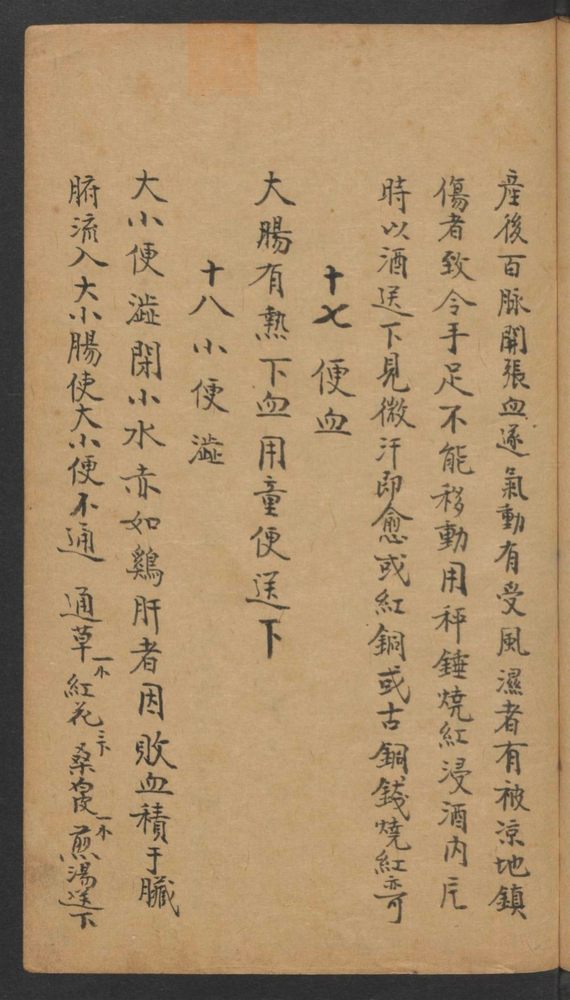 產後百脉開張血遂氣動有受風濕者有被凉地鎮
傷者致令手足不能移動用秤錘燒紅浸酒內
時以酒送下見微汗即愈或紅銅或古銅錢燒紅亦可
十七 便血
大腸有熱下血用童便送下
十八小便澁
大小便澁閉小水赤如鷄肝者因敗血積于臟
腑流入大小腸使大小便不通 通草 紅花 桑皮 煎湯送下